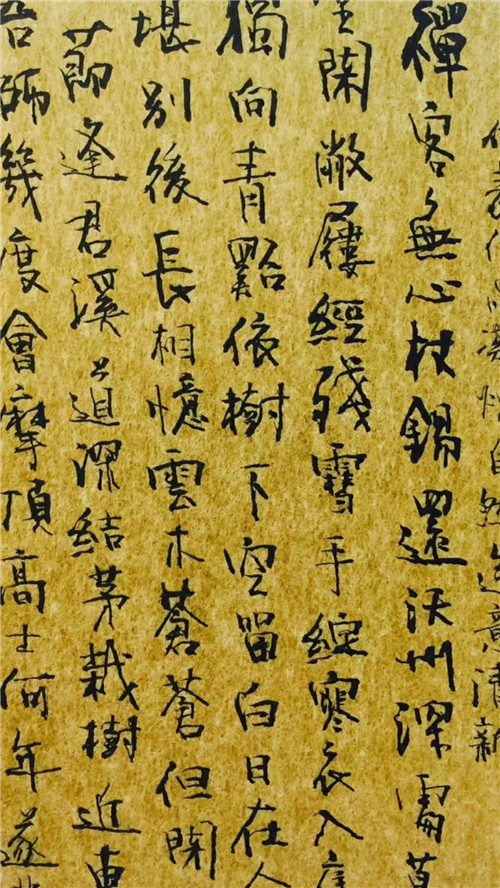 自然造意清新
禪客無心杖錫還沃州深處草
堂閑敝屨經殘雪手綻寒衣入
獨向青依樹下空留白日在人
堪別後長相憶雲木蒼蒼但閑
節逢君溪道深結茅栽樹近東
吾師幾度會摩頂高士何年遂